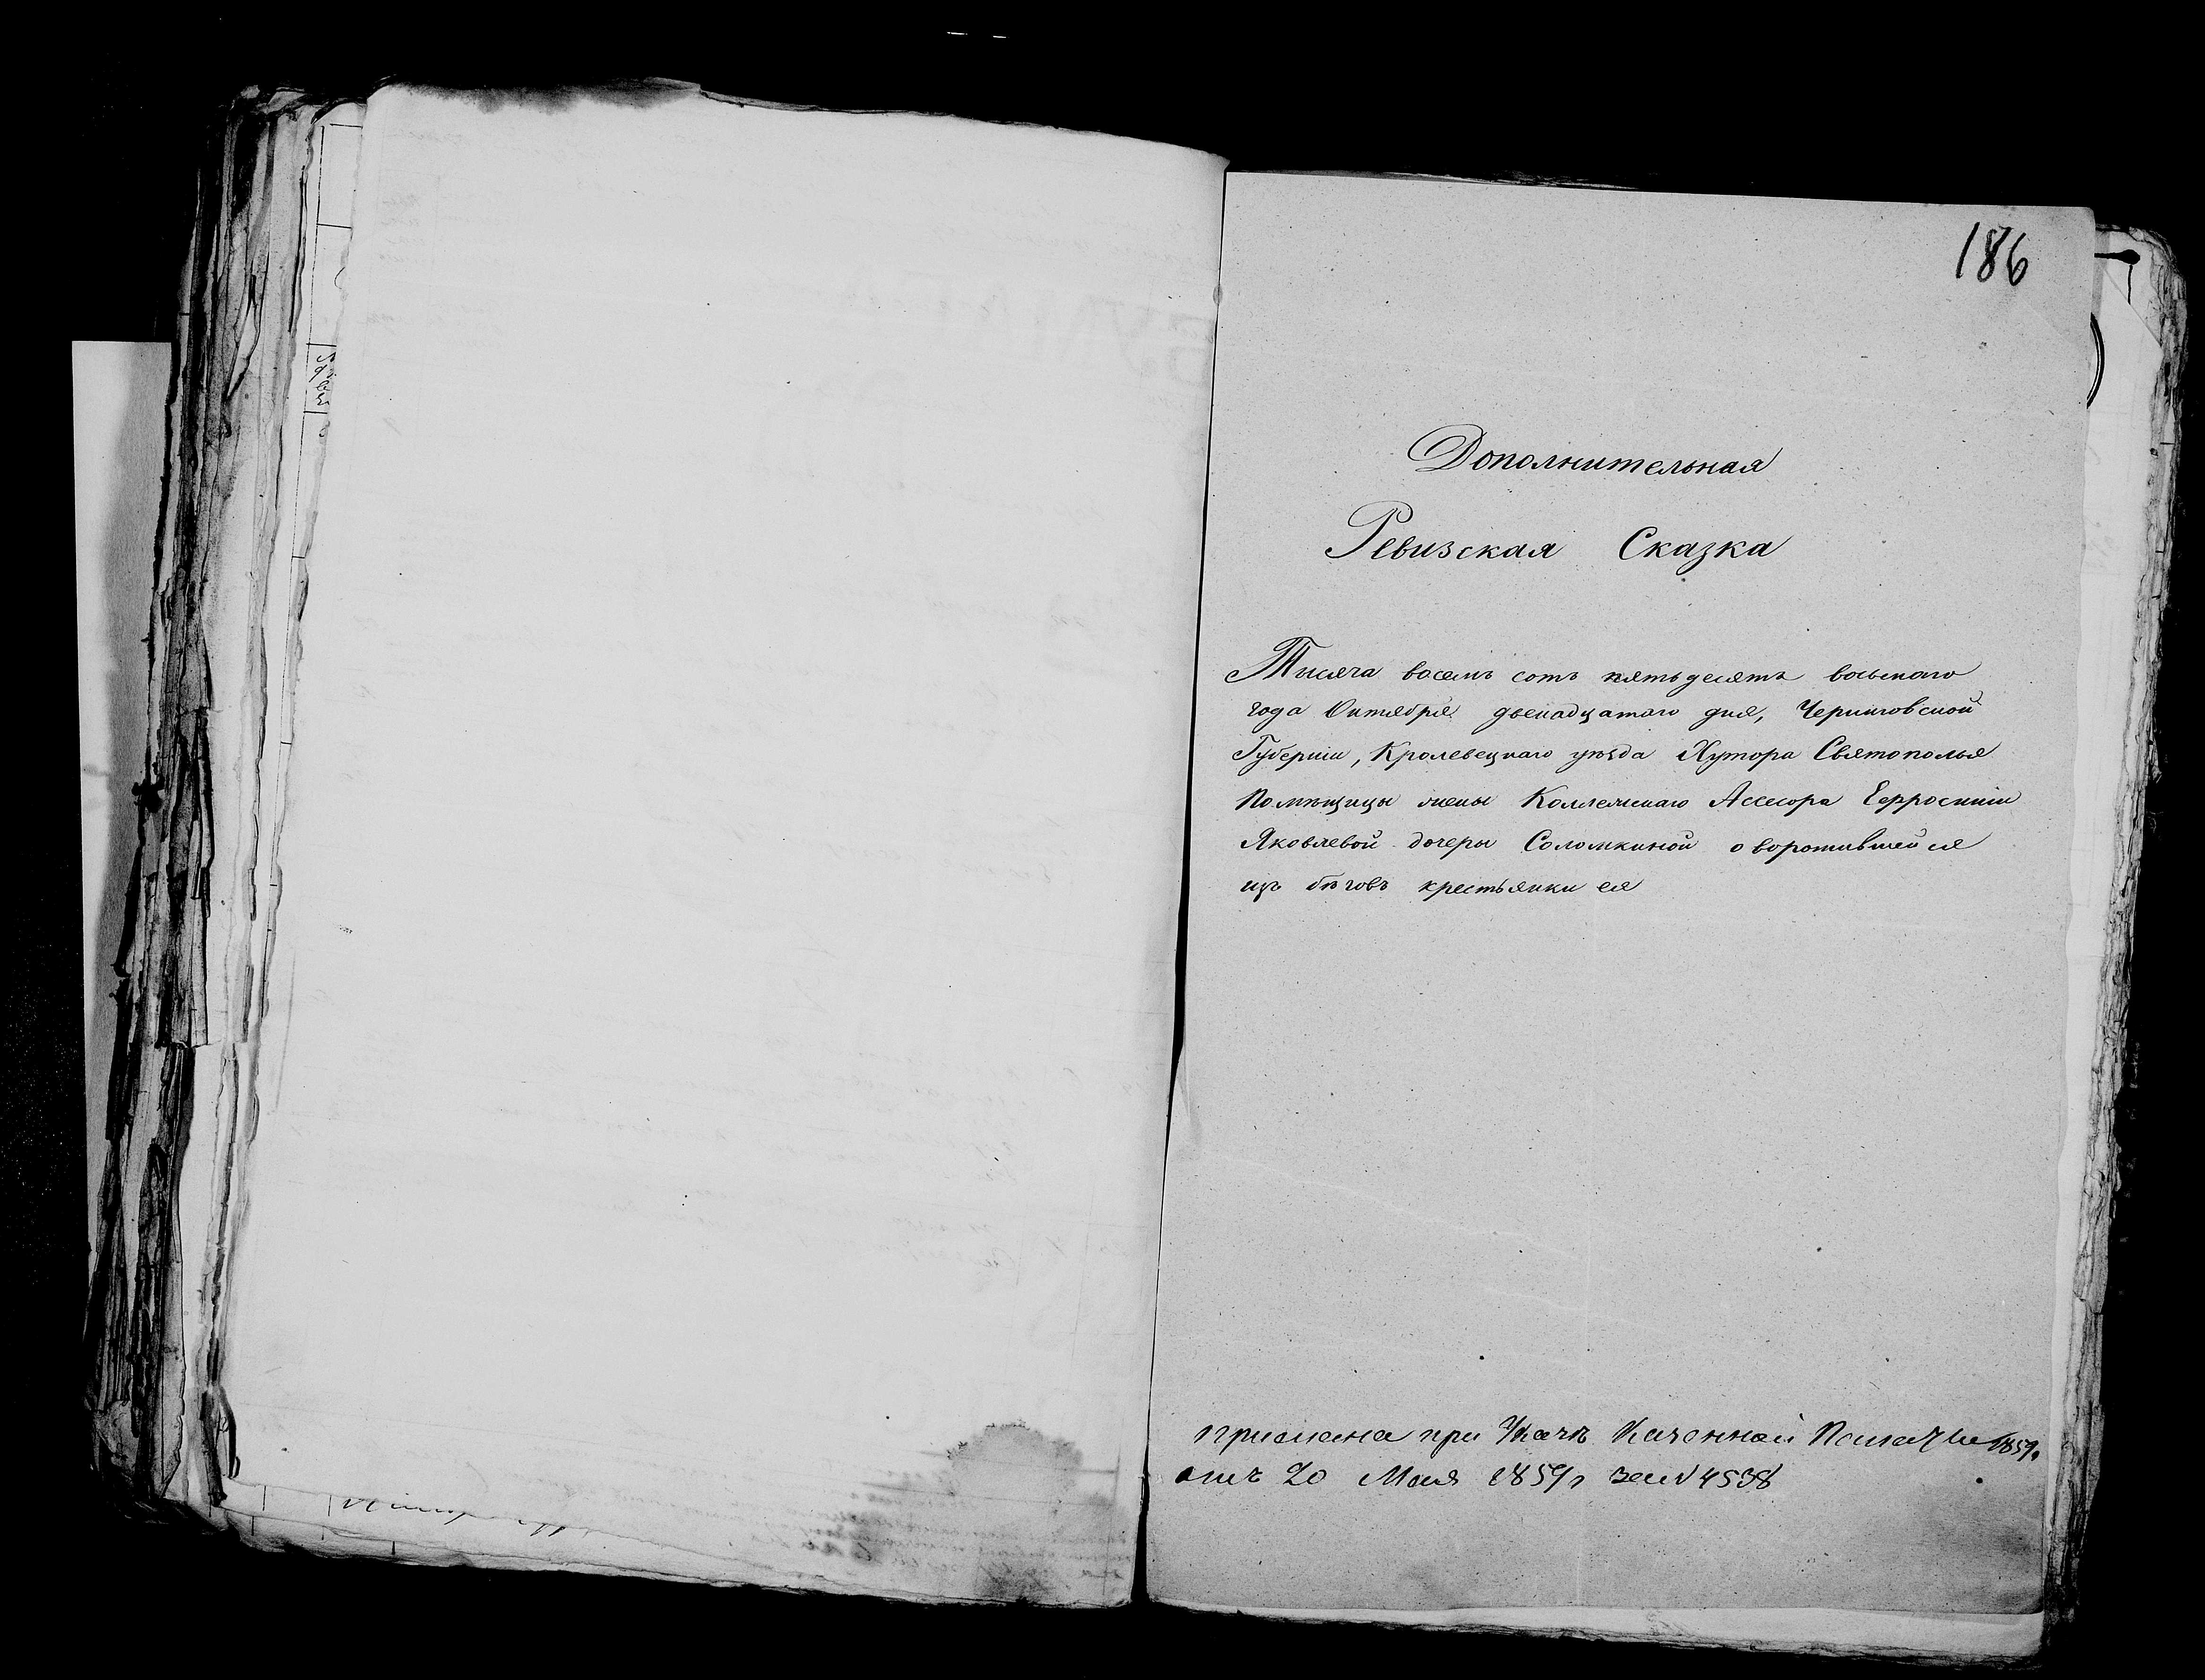 186
Дополнительная
Ревизская Сказка
Тысяча восемь сотъ пятьдесятъ восьмаго
года Октября двенадцатаго дня, Черниговской
Губерніи, Кролевецкаго уѣзда Хутора Святополья
Помѣщицы жены Коллежскаго Ассесора Ефросиніи
Яковлевой дочеры Соломкиной о воротившейся
изъ бѣговъ крестьянки ея
прислана при Указѣ Казенной Палаты
отъ 20 Мая 1859 г за № 4538